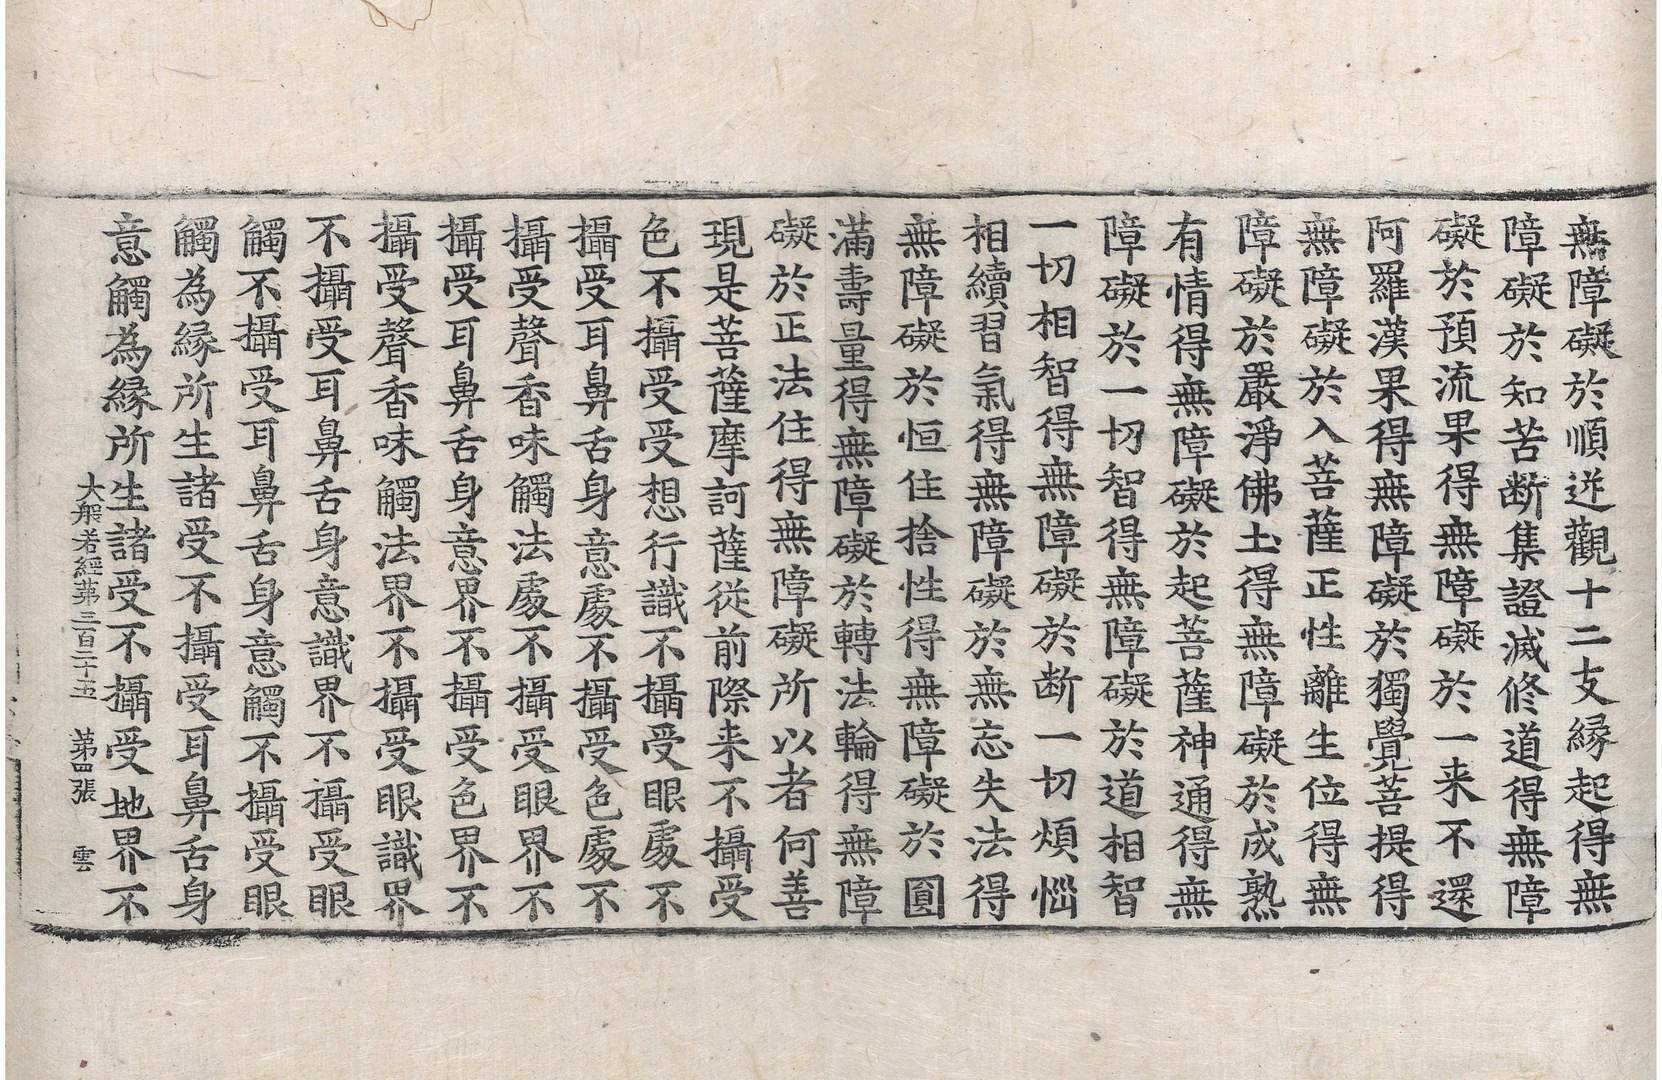 無障礙於順逆觀十二支緣起得無
障礙於知苦断集證滅修道得無障
礙於預流果得無障礙於一来不還
阿羅漢果得無障礙於獨覺菩提得
無障礙於入菩薩正性離生位得無
障礙於嚴淨佛土得無障礙於成熟
有情得無障礙於起菩薩神通得無
障礙於一切智得無障礙於道相智
一切相智得無障礙於断一切煩惱
相續習氣得無障礙於無忘失法得
無障礙於恒住捨性得無障礙於圓
滿壽量得無障礙於轉法輪得無障
礙於正法住得無障礙所以者何善
現是菩薩摩訶薩從前際来不攝受
色不攝受受想行識不攝受眼處不
攝受耳鼻舌身意處不攝受色處不
攝受聲香味觸法處不攝受眼界不
攝受耳鼻舌身意界不攝受色界不
攝受聲香味觸法界不攝受眼識界
不攝受耳鼻舌身意識界不攝受眼
觸不攝受耳鼻舌身意觸不攝受眼
觸為緣所生諸受不攝受耳鼻舌身
意觸為緣所生諸受不攝受地界不
大般若經苐三百二十五 苐四張 雲